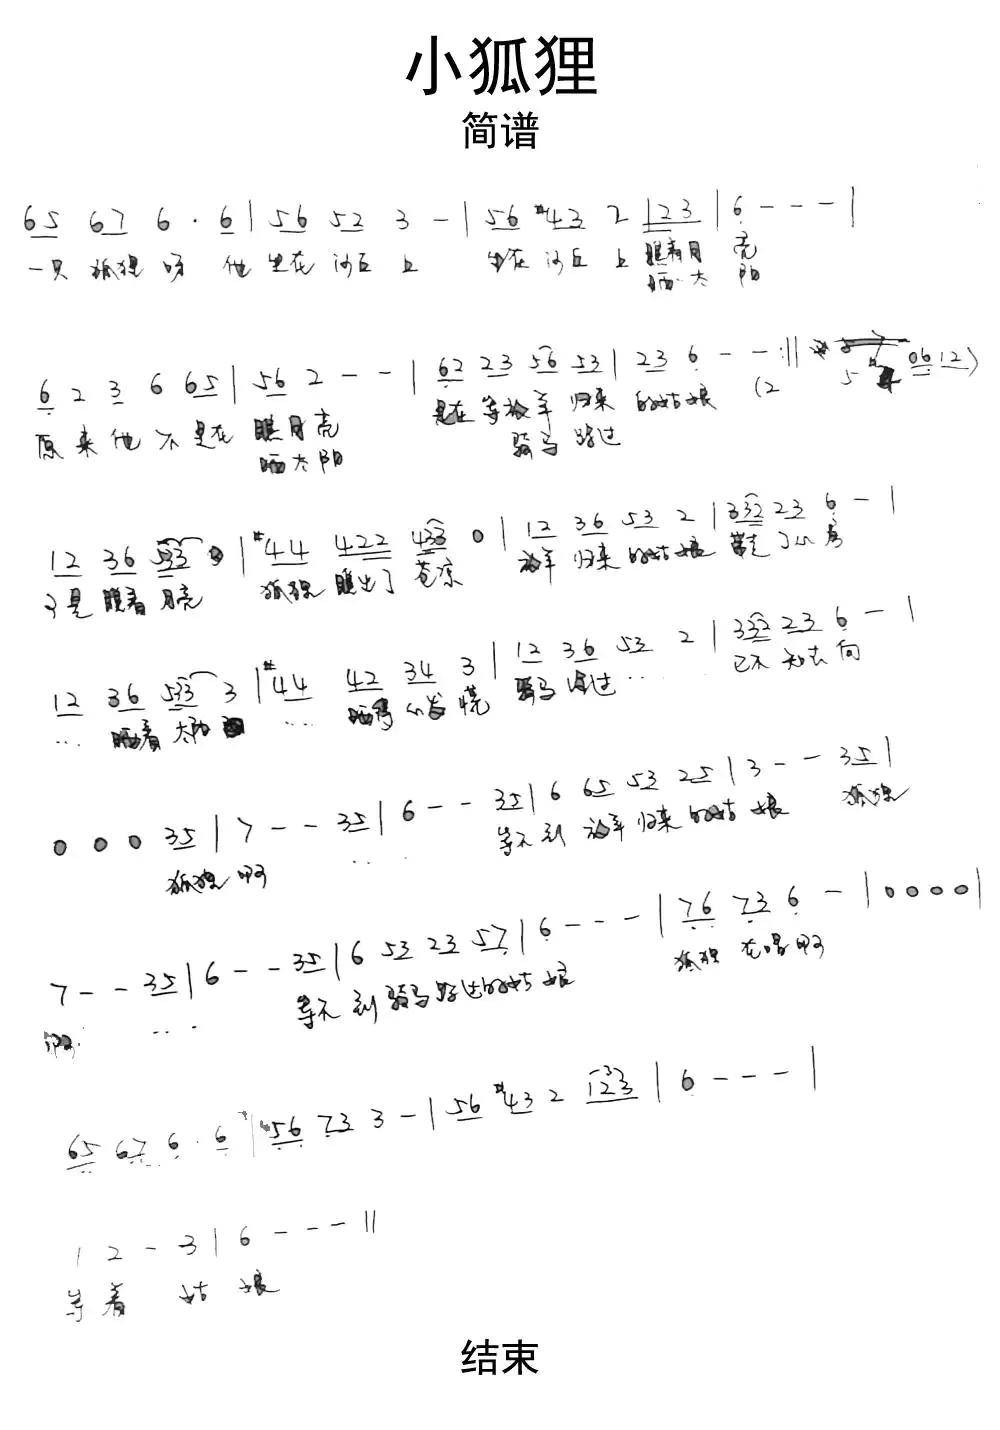 小狐狸
简谱
65 67 6 · 6 | 56 52 3 - | 56 #43 2 123 | 6 - - - |
一只 狐狸呀 他 坐在 沙丘上 坐在 沙丘上 瞧着月亮
晒太阳
6 2 3 6 65 | 56 2 - - | 62 23 56 53 | 23 6 - - :|| 5 06 12)
原来他不是在 瞧月亮 是在等放羊归来 的姑娘 (2
晒太阳 骑马路过
12 36 533 0 | #44 422 433 0 | 12 36 53 2 | 332 23 6 - |
只是瞧着月亮 狐狸瞧出了苍凉 放羊归来的姑娘
12 36 533 3 | #44 42 34 3 | 12 36 53 2 | 332 23 6 - |
... 晒着太阳 ... 晒得心发慌 骑马路过 ...... 已不知去向
0 0 0 35 | 7 - - 35 | 6 - - 35 | 6 65 53 25 | 3 - - 35 |
狐狸啊 .... 等不到放羊归来的姑娘 狐狸
7 - - 35 | 6 - - 35 | 6 53 23 57 | 6 - - - | 76 73 6 - | 0 0 0 0 |
啊 ... 等不到骑马路过的姑娘 狐狸在唱啊
65 67 6 · 6 | 56 73 3 - | 56 #43 2 123 | 6 - - - |
1 2 - 3 | 6 - - - ||
等着 姑娘
结束